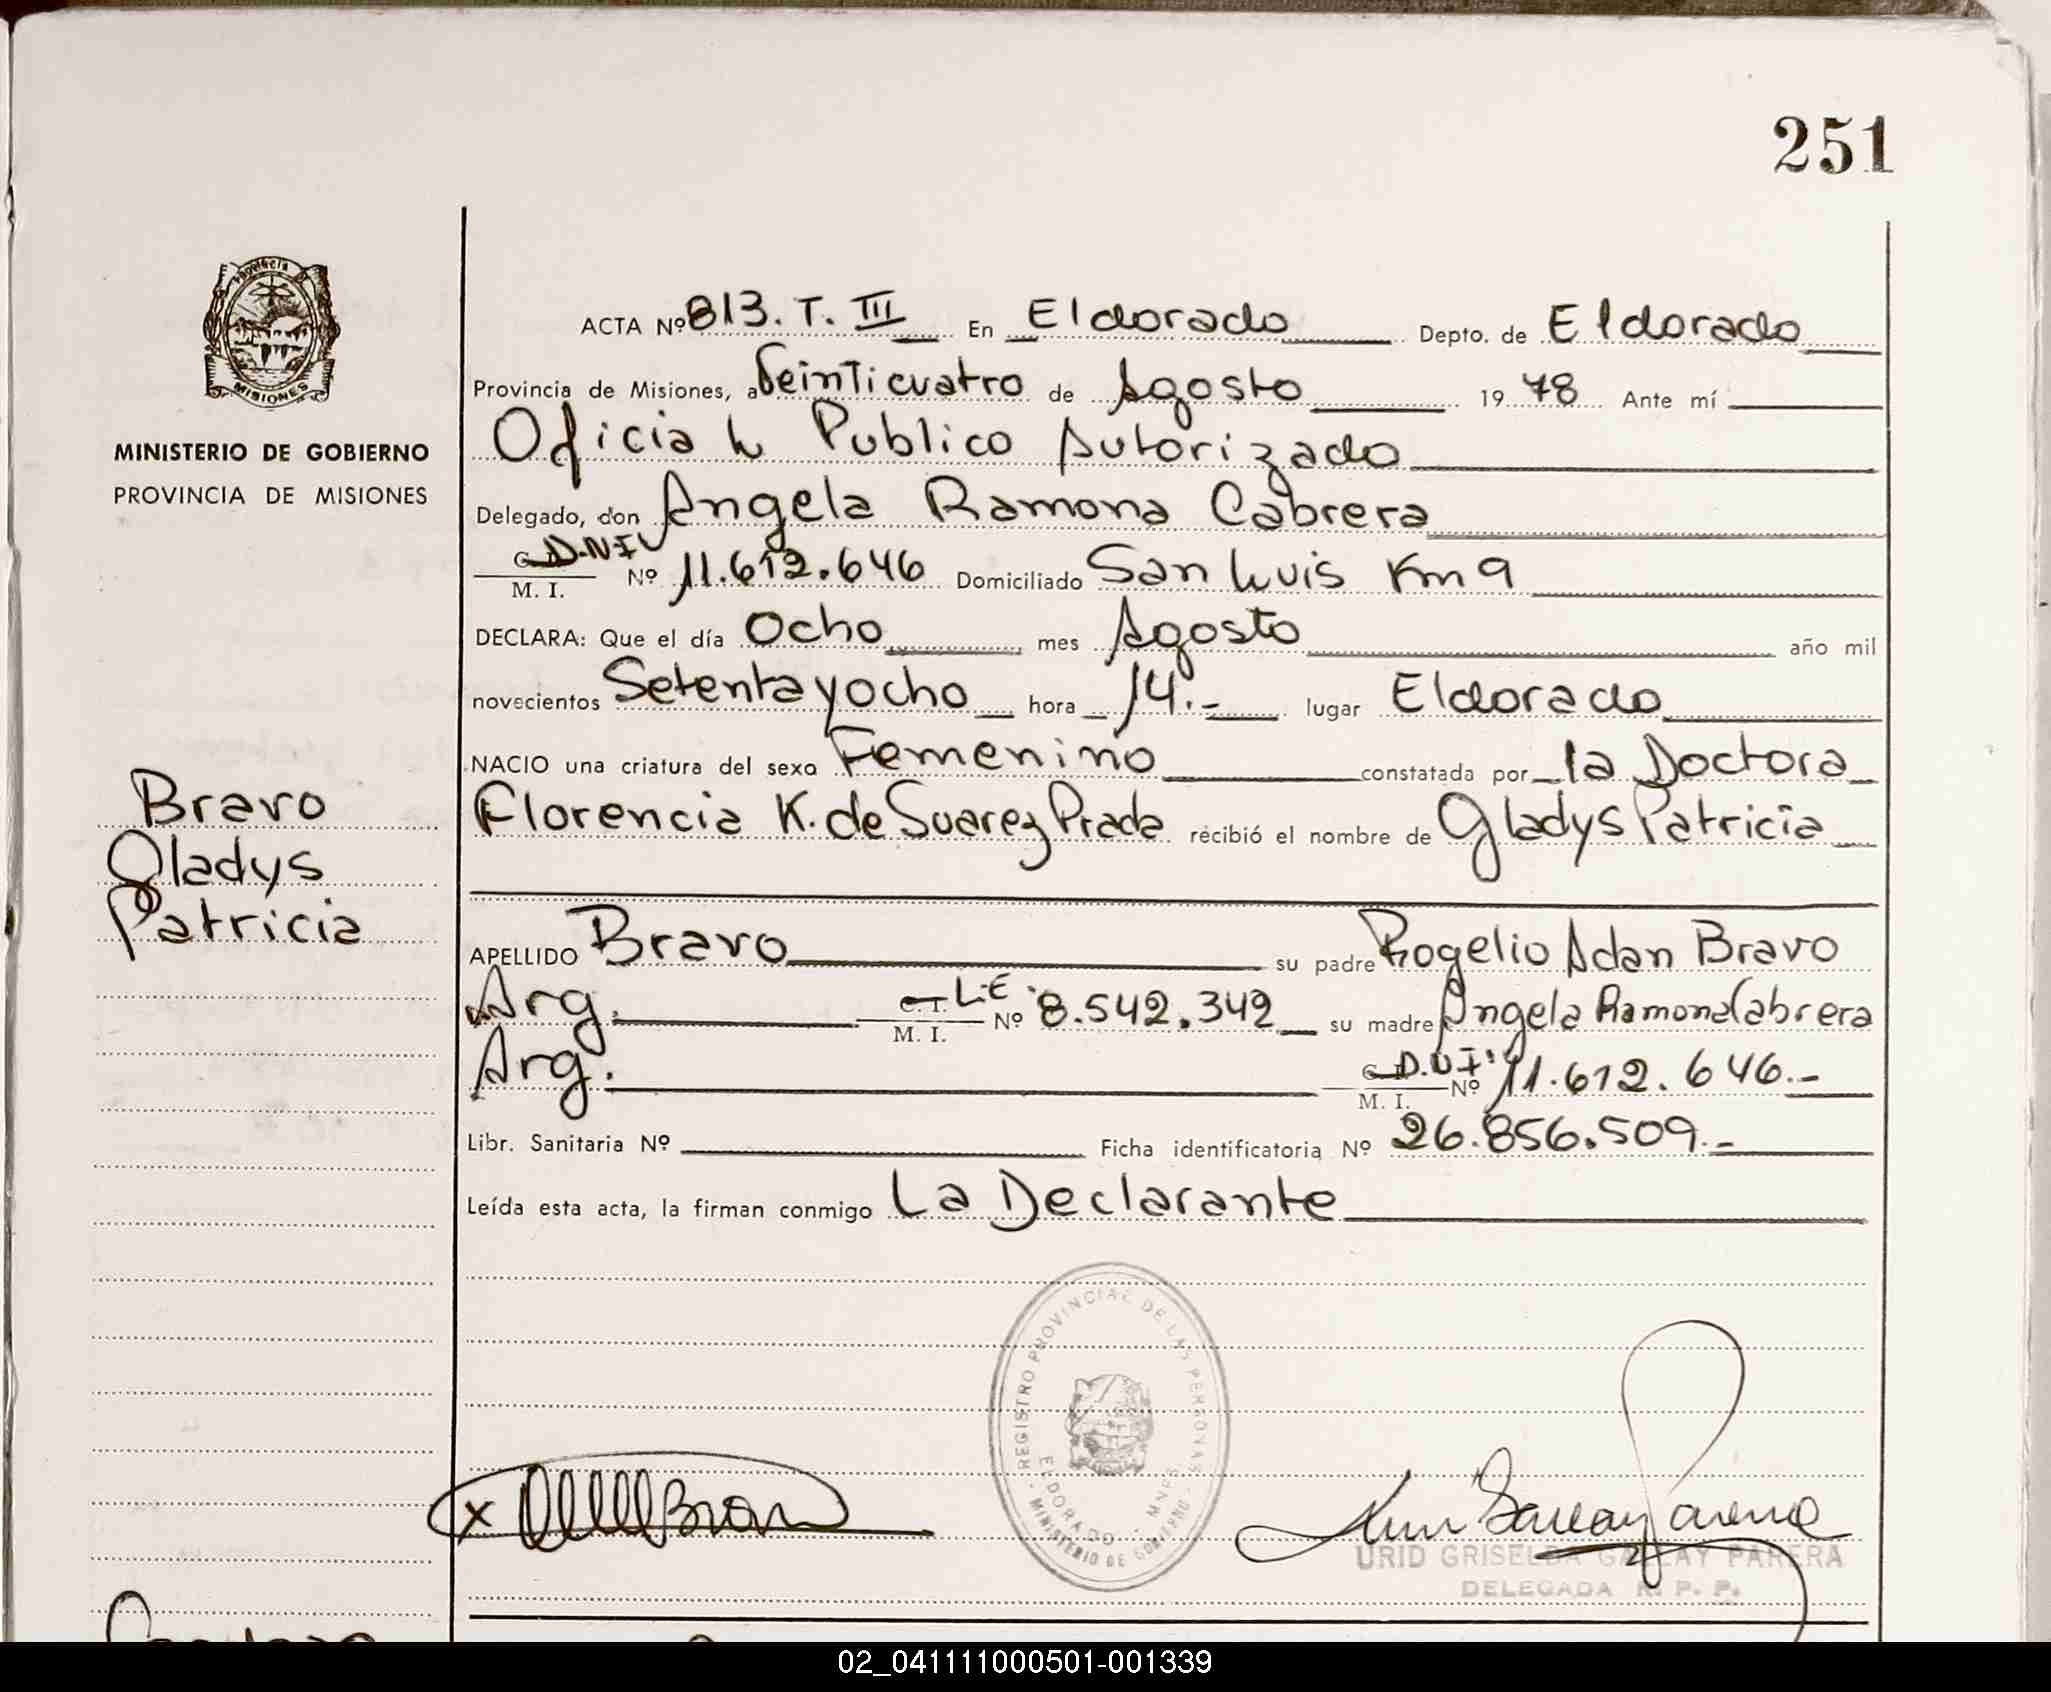 251
Provincia
MISIONES
MINISTERIO DE GOBIERNO
PROVINCIA DE MISIONES
ACTA Nº 813. T. III En Eldorado Depto. de Eldorado
Provincia de Misiones, a Veinticuatro de Agosto 1978 Ante mí
Oficial Publico Autorizado
Delegado, don Angela Ramona Cabrera
D.N.I
M. I. Nº 11.612.646 Domiciliado San Luis Km 9
DECLARA: Que el día Ocho mes Agosto año mil
novecientos Setenta y ocho hora 14.- lugar Eldorado
NACIO una criatura del sexo Femenino constatada por la Doctora
Florencia K. de Suarez Prada recibió el nombre de Gladys Patricia
Bravo
Gladys
Patricia
APELLIDO Bravo su padre Rogelio Adan Bravo
Arg. C. I. L.E.
M. I. Nº 8.542.342 su madre Angela Ramona Cabrera
Arg. D.N.I.
M. I. Nº 11.612.646.-
Libr. Sanitaria Nº Ficha identificatoria Nº 26.856.509.-
Leída esta acta, la firman conmigo La Declarante
REGISTRO PROVINCIAL DE LAS PERSONAS
ELDORADO - MNES
MINISTERIO DE GOBIERNO
x Bravo
URID GRISELDA GALLAY PARERA
DELEGADA R. P. P.
02_041111000501-001339